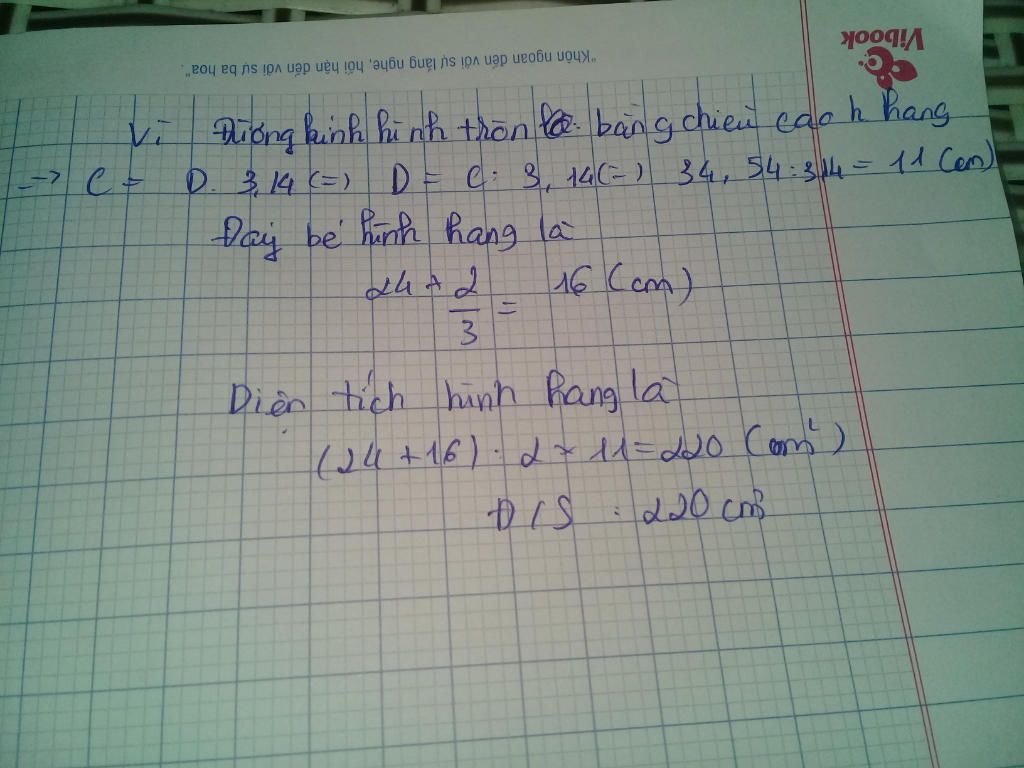 Vibook
"Khôn ngoan đến với sự lắng nghe, hối hận đến với sự ba hoa".
Vì Đường kính hình tròn bằng chiều cao h hang
=> C = D. 3,14 (=) D = C: 3,14(=) 34,54:3,14 = 11 (cm)
Đáy bé hình hang là
24 × 2/3 = 16 (cm)
Diện tích hình hang là
(24 + 16) : 2 × 11 = 220 (cm²)
Đ/S : 220 cm²